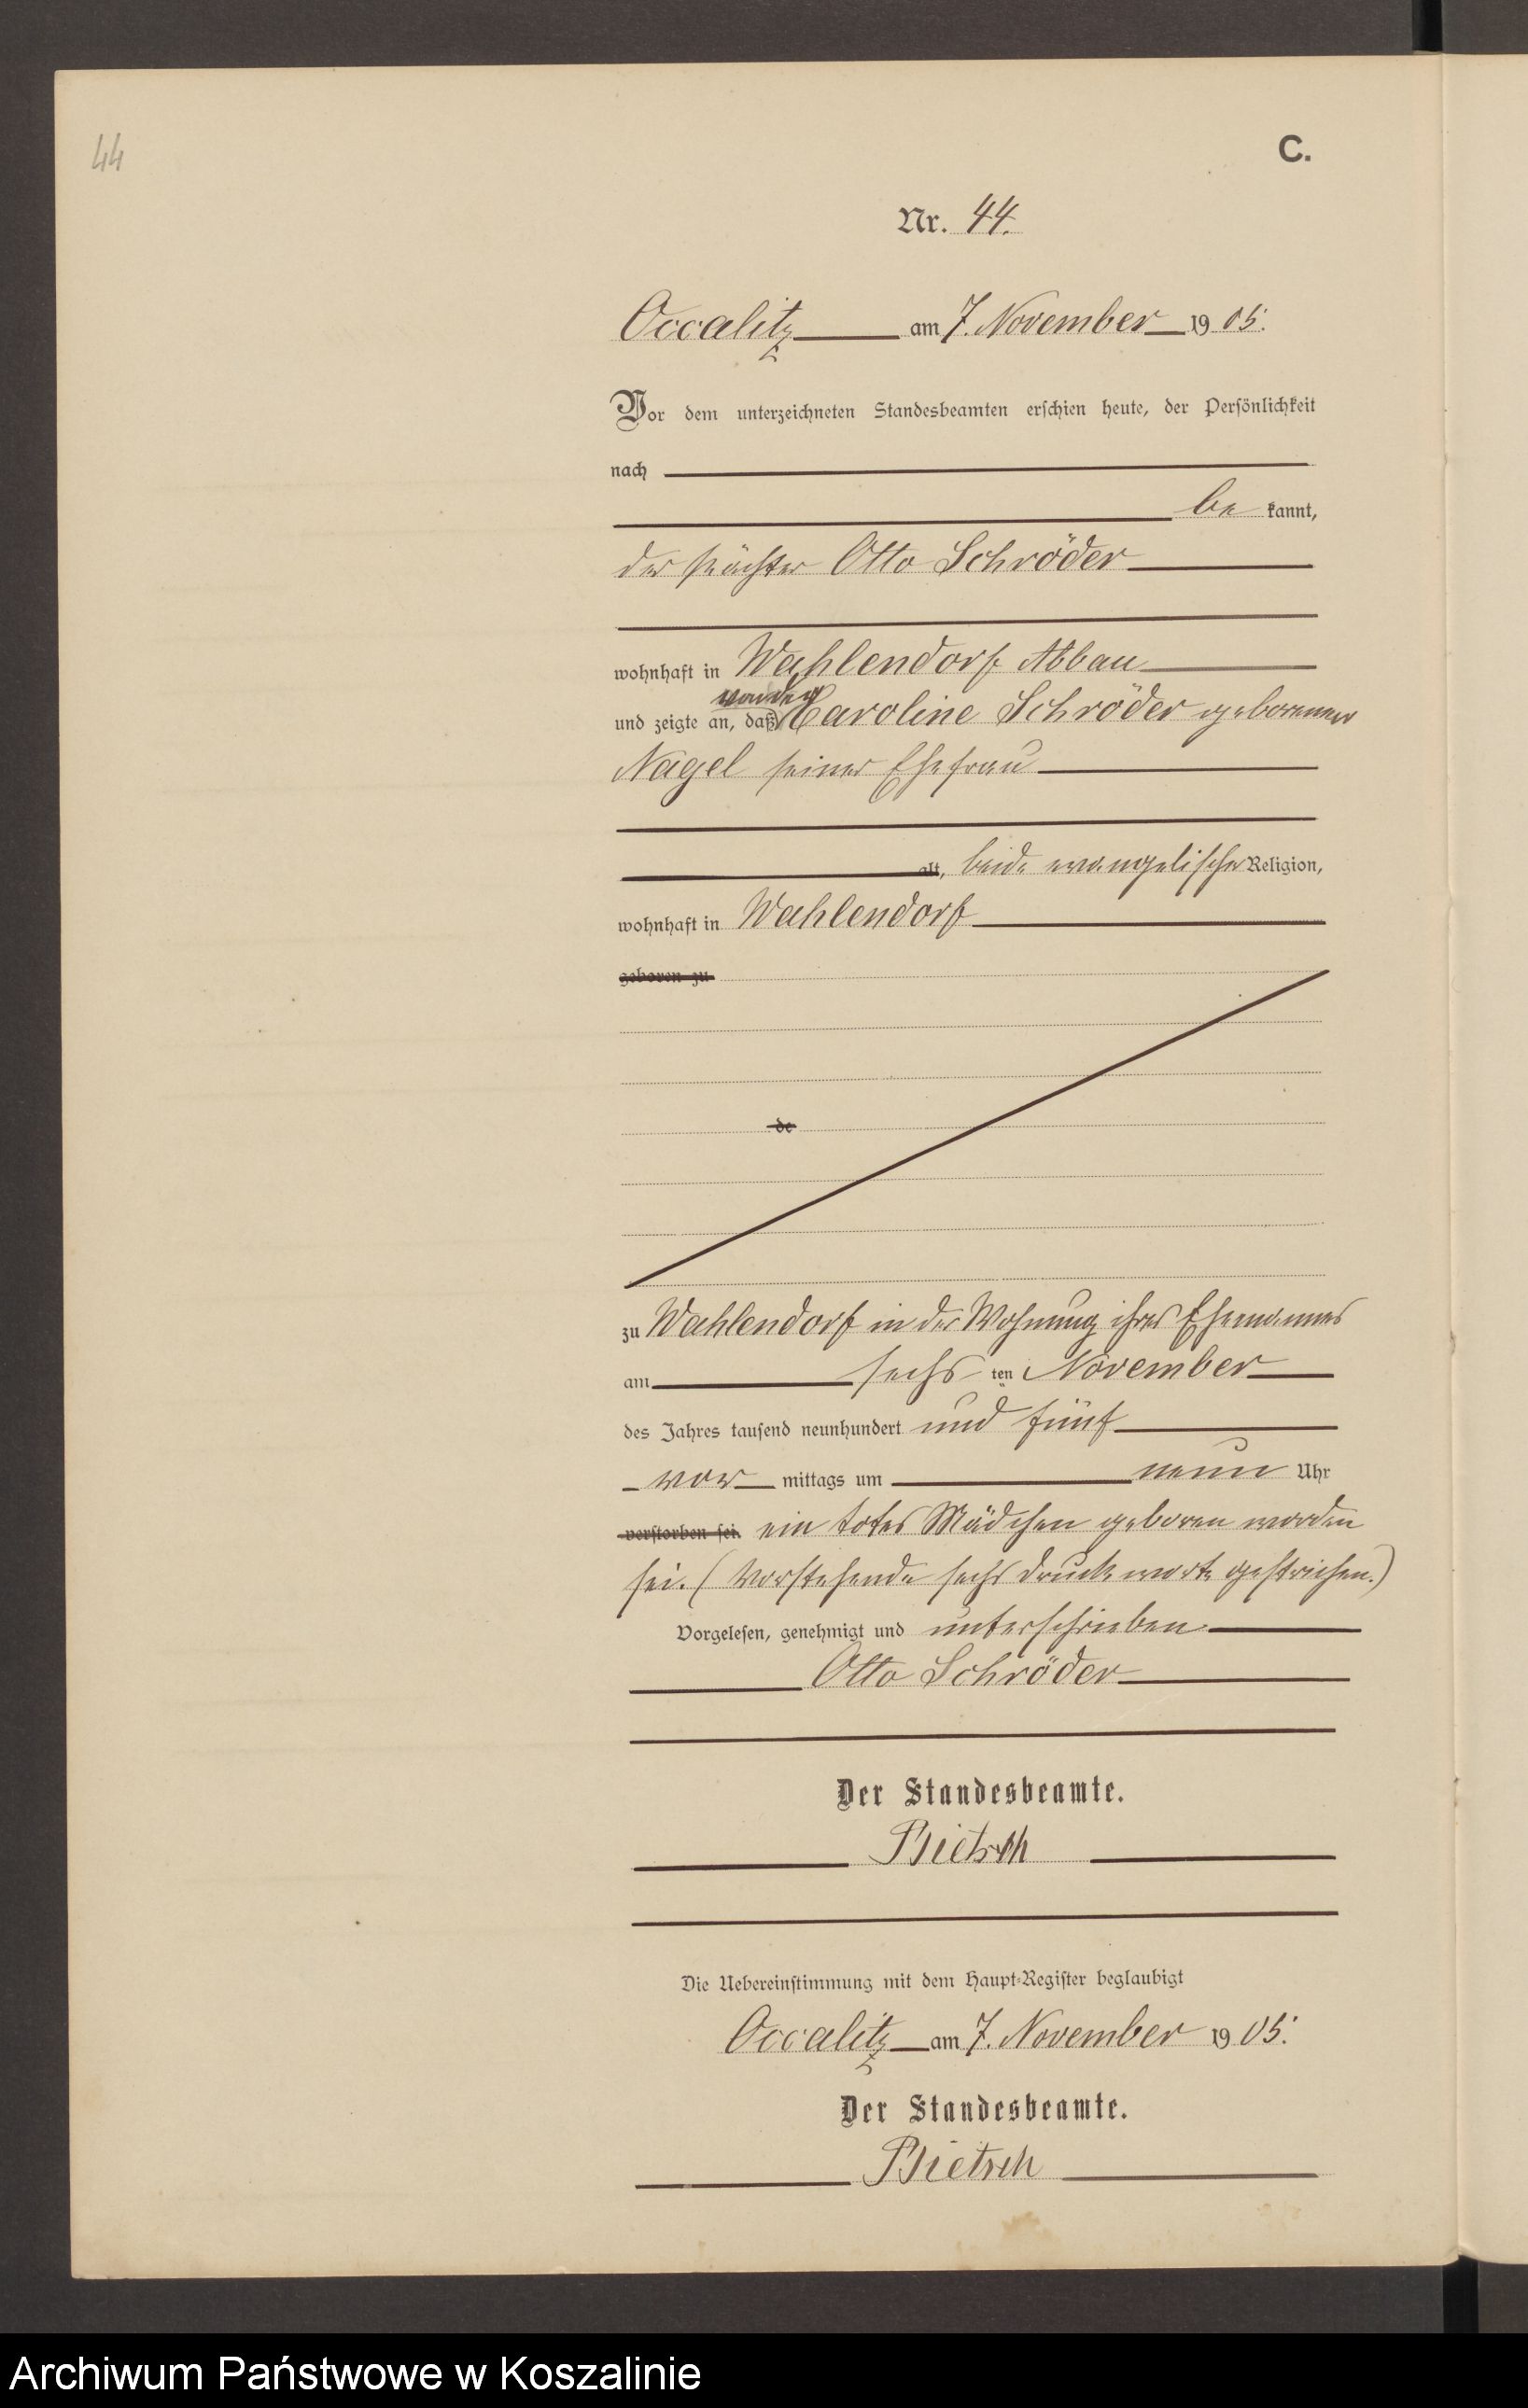 44
C.
Nr. 44.
Occalitz am 7. November 1905.
Vor dem unterzeichneten Standesbeamten erschien heute, der Persönlichkeit
nach
be kannt,
der Pächter Otto Schröder
wohnhaft in Wahlendorf Abbau
von der
und zeigte an, daß Caroline Schröder geborenen
Nagel seiner Ehefrau
alt, beide evangelischer Religion,
wohnhaft in Wahlendorf
geboren zu
de
zu Wahlendorf in der Wohnung ihres Ehemannes
am sechs ten November
des Jahres tausend neunhundert und fünf
vor mittags um neun Uhr
verstorben sei. ein totes Mädchen geboren worden
sei. (Vorstehende sechs Druckworte gestrichen.)
Vorgelesen, genehmigt und unterschrieben
Otto Schröder
Der Standesbeamte.
Die Uebereinstimmung mit dem Haupt-Register beglaubigt
Occalitz am 7. November 1905.
Der Standesbeamte.
Archiwum Państwowe w Koszalinie